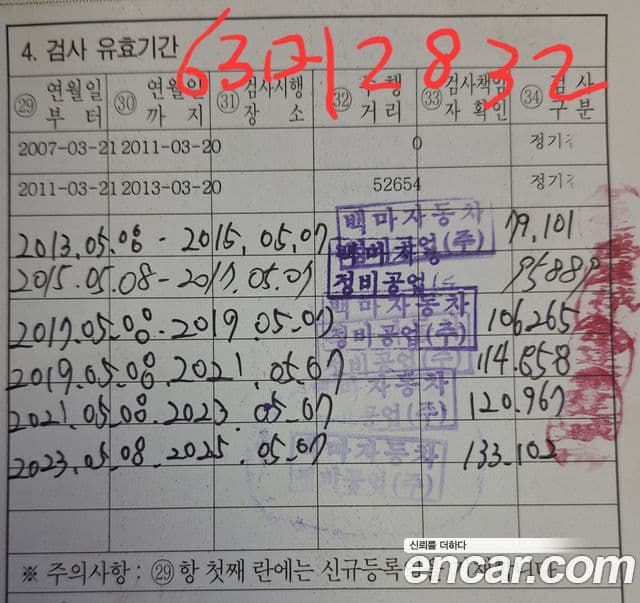 63머2832
4. 검사 유효기간
㉙ 연월일부터 ㉚ 연월일까지 ㉛ 검사시행장소 ㉜ 주행거리 ㉝ 검사책임자확인 ㉞ 검사구분
2007-03-21 2011-03-20 0 정기
2011-03-21 2013-03-20 52654 정기
2013.05.08 - 2015.05.07 백마자동차 79,101
정비공업(주)
2015.05.08 - 2017.05.07 정비공업 95889
2017.05.08 . 2019.05.07 백마자동차 106265
정비공업(주)
2019.05.08 . 2021.05.07 정비공업(주) 114.858
2021.05.08 . 2023.05-07 자동차 120.967
공업(주)
2023.05.08 - 2025.05-07 백마자동차 133.102
정비공업(주)
신뢰를 더하다
※ 주의사항 : ㉙ 항 첫째 란에는 신규등록
encar.com